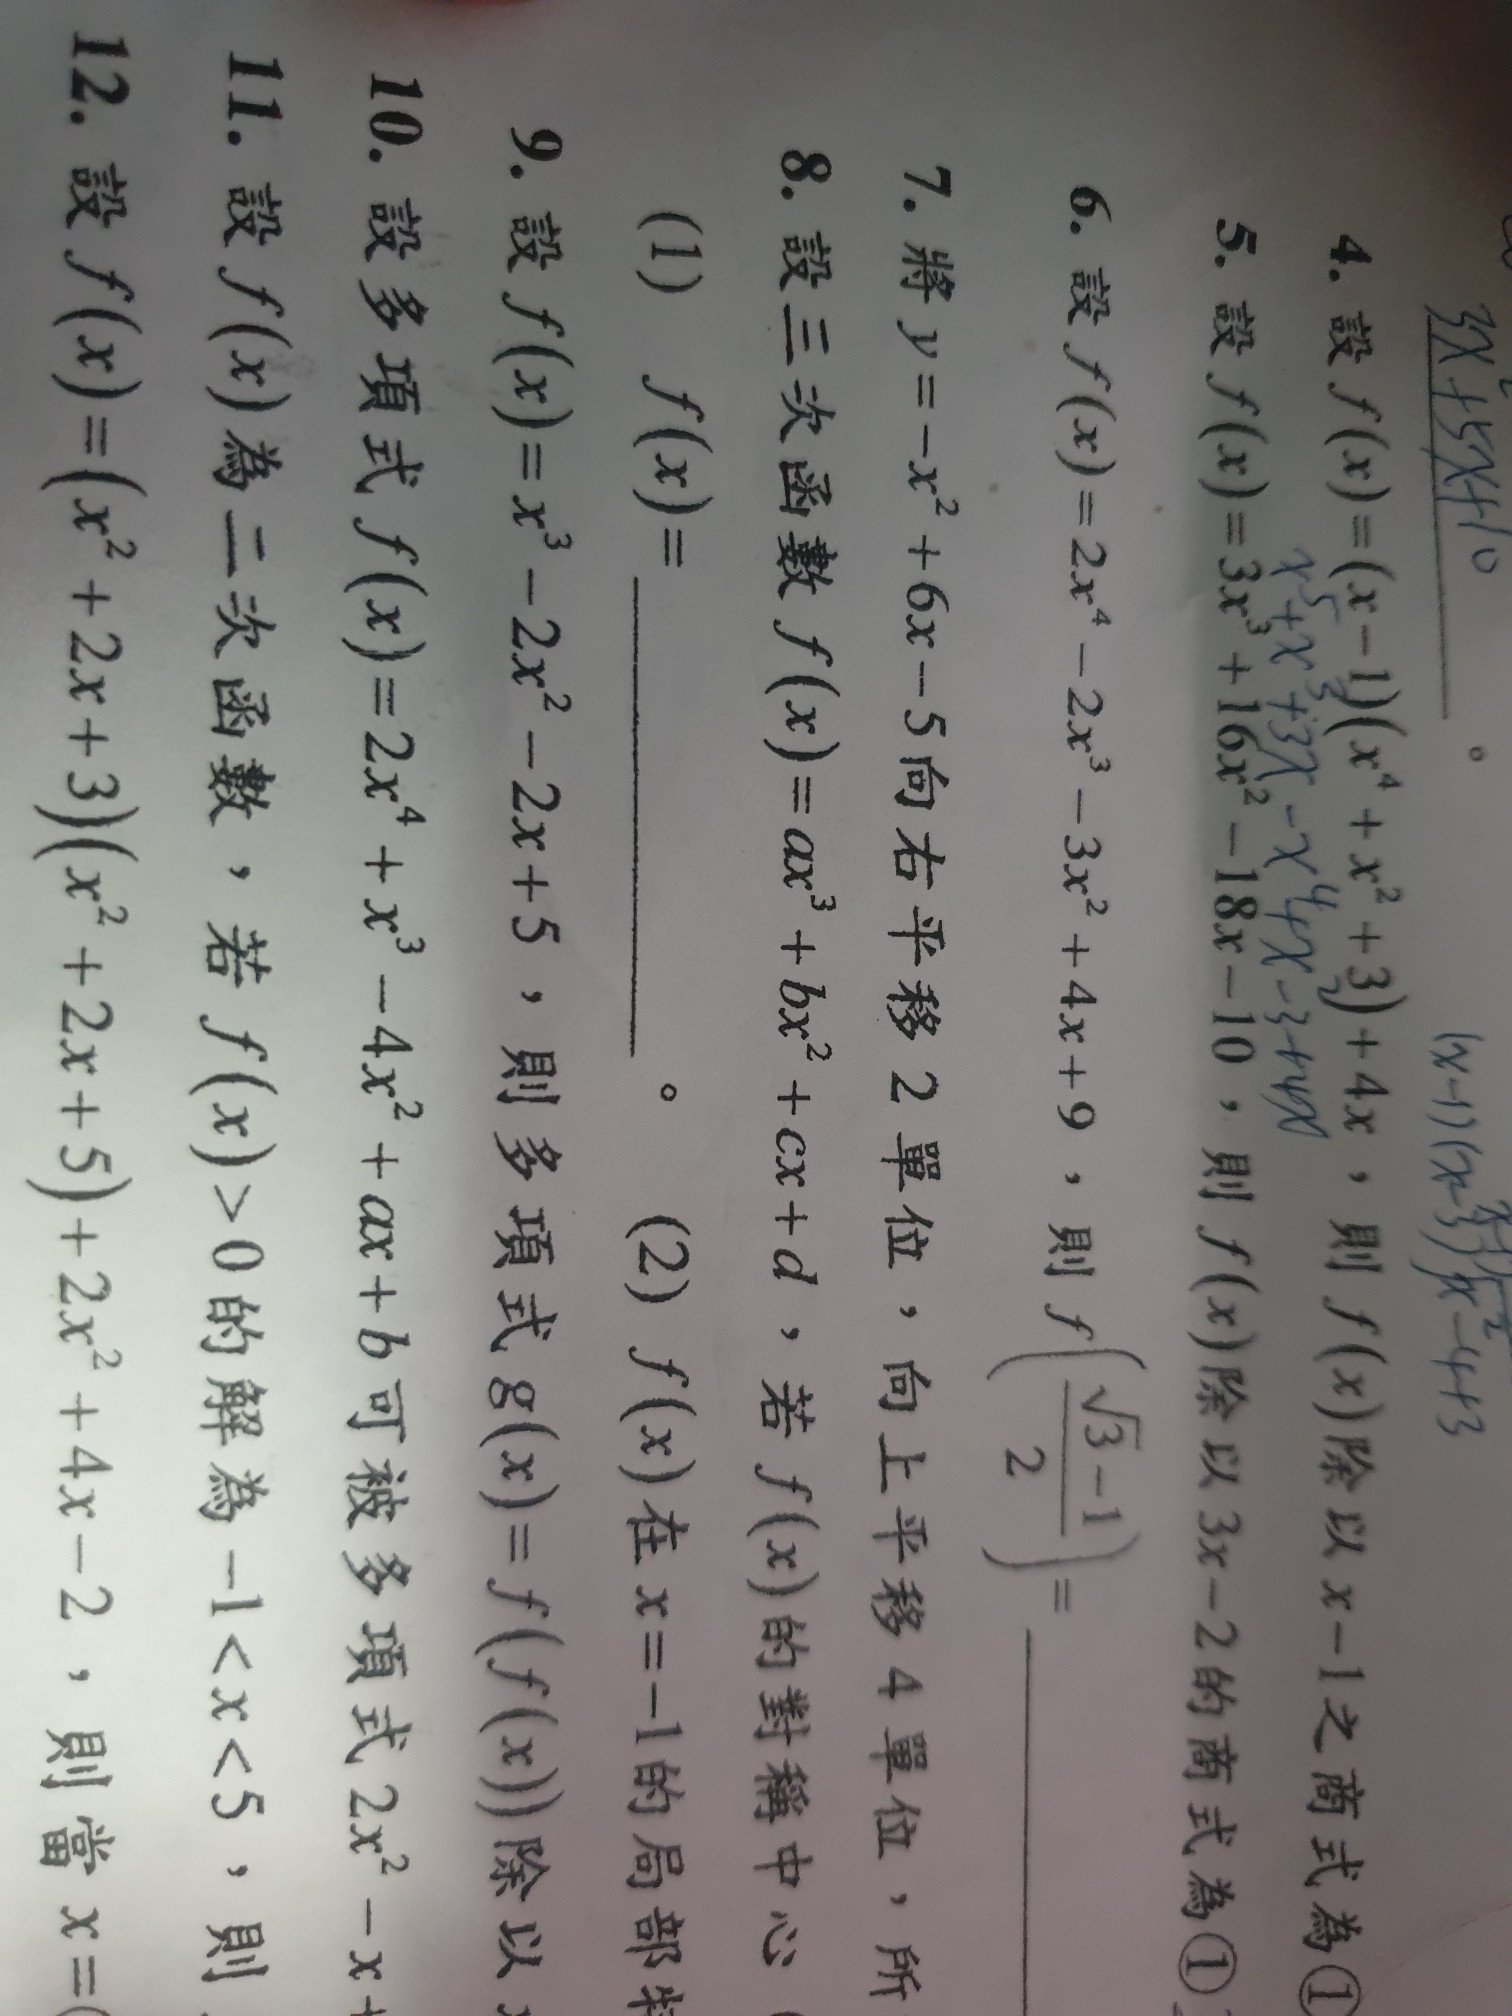 3x²+5x+10 。 (x-1)(x-3) x²-4+3
4. 設 f(x)=(x-1)(x⁴+x²+3)+4x，則 f(x)除以 x-1之商式為①
x⁵+x³+3x-x⁴+x²-3+4x
5. 設 f(x)=3x³+16x²-18x-10，則 f(x)除以 3x-2的商式為①
6. 設 f(x)=2x⁴-2x³-3x²+4x+9，則 f((√3-1)/2)=
7. 將 y=-x²+6x-5向右平移 2 單位，向上平移 4 單位，所
8. 設三次函數 f(x)=ax³+bx²+cx+d，若 f(x)的對稱中心
(1) f(x)= 。 (2) f(x)在 x=-1的局部特
9. 設 f(x)=x³-2x²-2x+5，則多項式 g(x)=f(f(x))除以
10. 設多項式 f(x)=2x⁴+x³-4x²+ax+b可被多項式 2x²-x+
11. 設 f(x)為二次函數，若 f(x)>0的解為 -1<x<5，則
12. 設 f(x)=(x²+2x+3)(x²+2x+5)+2x²+4x-2，則當 x=